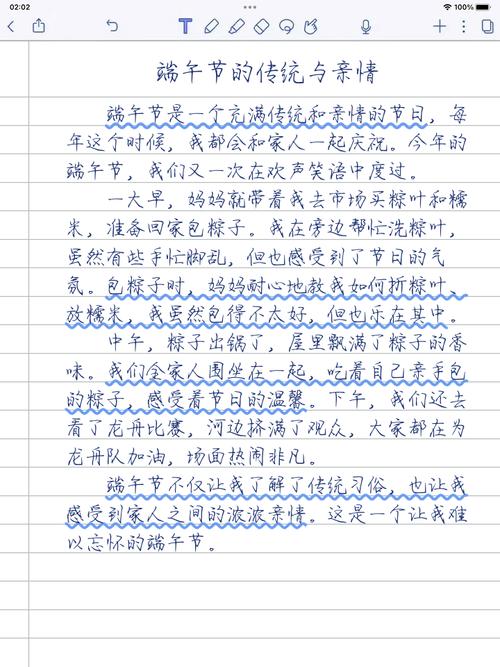 02:02
100%
端午节的传统与亲情
端午节是一个充满传统和亲情的节日，每
年这个时候，我都会和家人一起庆祝。今年的
端午节，我们又一次在欢声笑语中度过。
一大早，妈妈就带着我去市场买粽叶和糯
米，准备回家包粽子。我在旁边帮忙洗粽叶，
虽然有些手忙脚乱，但也感受到了节日的气
氛。包粽子时，妈妈耐心地教我如何折粽叶、
放糯米，我虽然包得不太好，但也乐在其中。
中午，粽子出锅了，屋里飘满了粽子的香
味。我们全家人围坐在一起，吃着自己亲手包
的粽子，感受着节日的温馨。下午，我们还去
看了龙舟比赛，河边挤满了观众，大家都在为
龙舟队加油，场面热闹非凡。
端午节不仅让我了解了传统习俗，也让我
感受到家人之间的浓浓亲情。这是一个让我难
以忘怀的端午节。